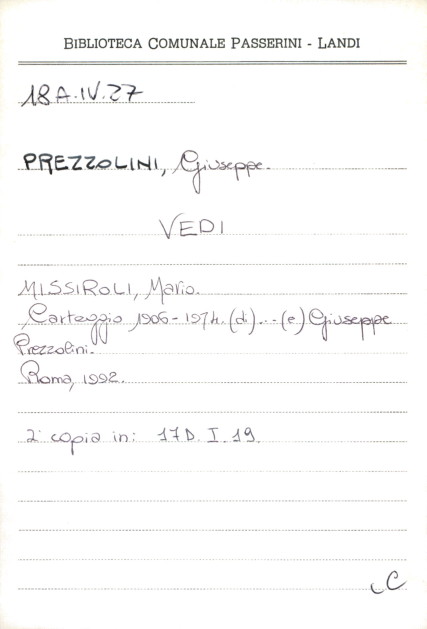 BIBLIOTECA COMUNALE PASSERINI - LANDI
18A.IV.27
PREZZOLINI, Giuseppe.
VEDI
MISSIROLI, Mario.
Carteggio 1906-1974. (di)...(e) Giuseppe
Prezzolini.
Roma, 1992.
2ª copia in: 17D. I. 19.
C